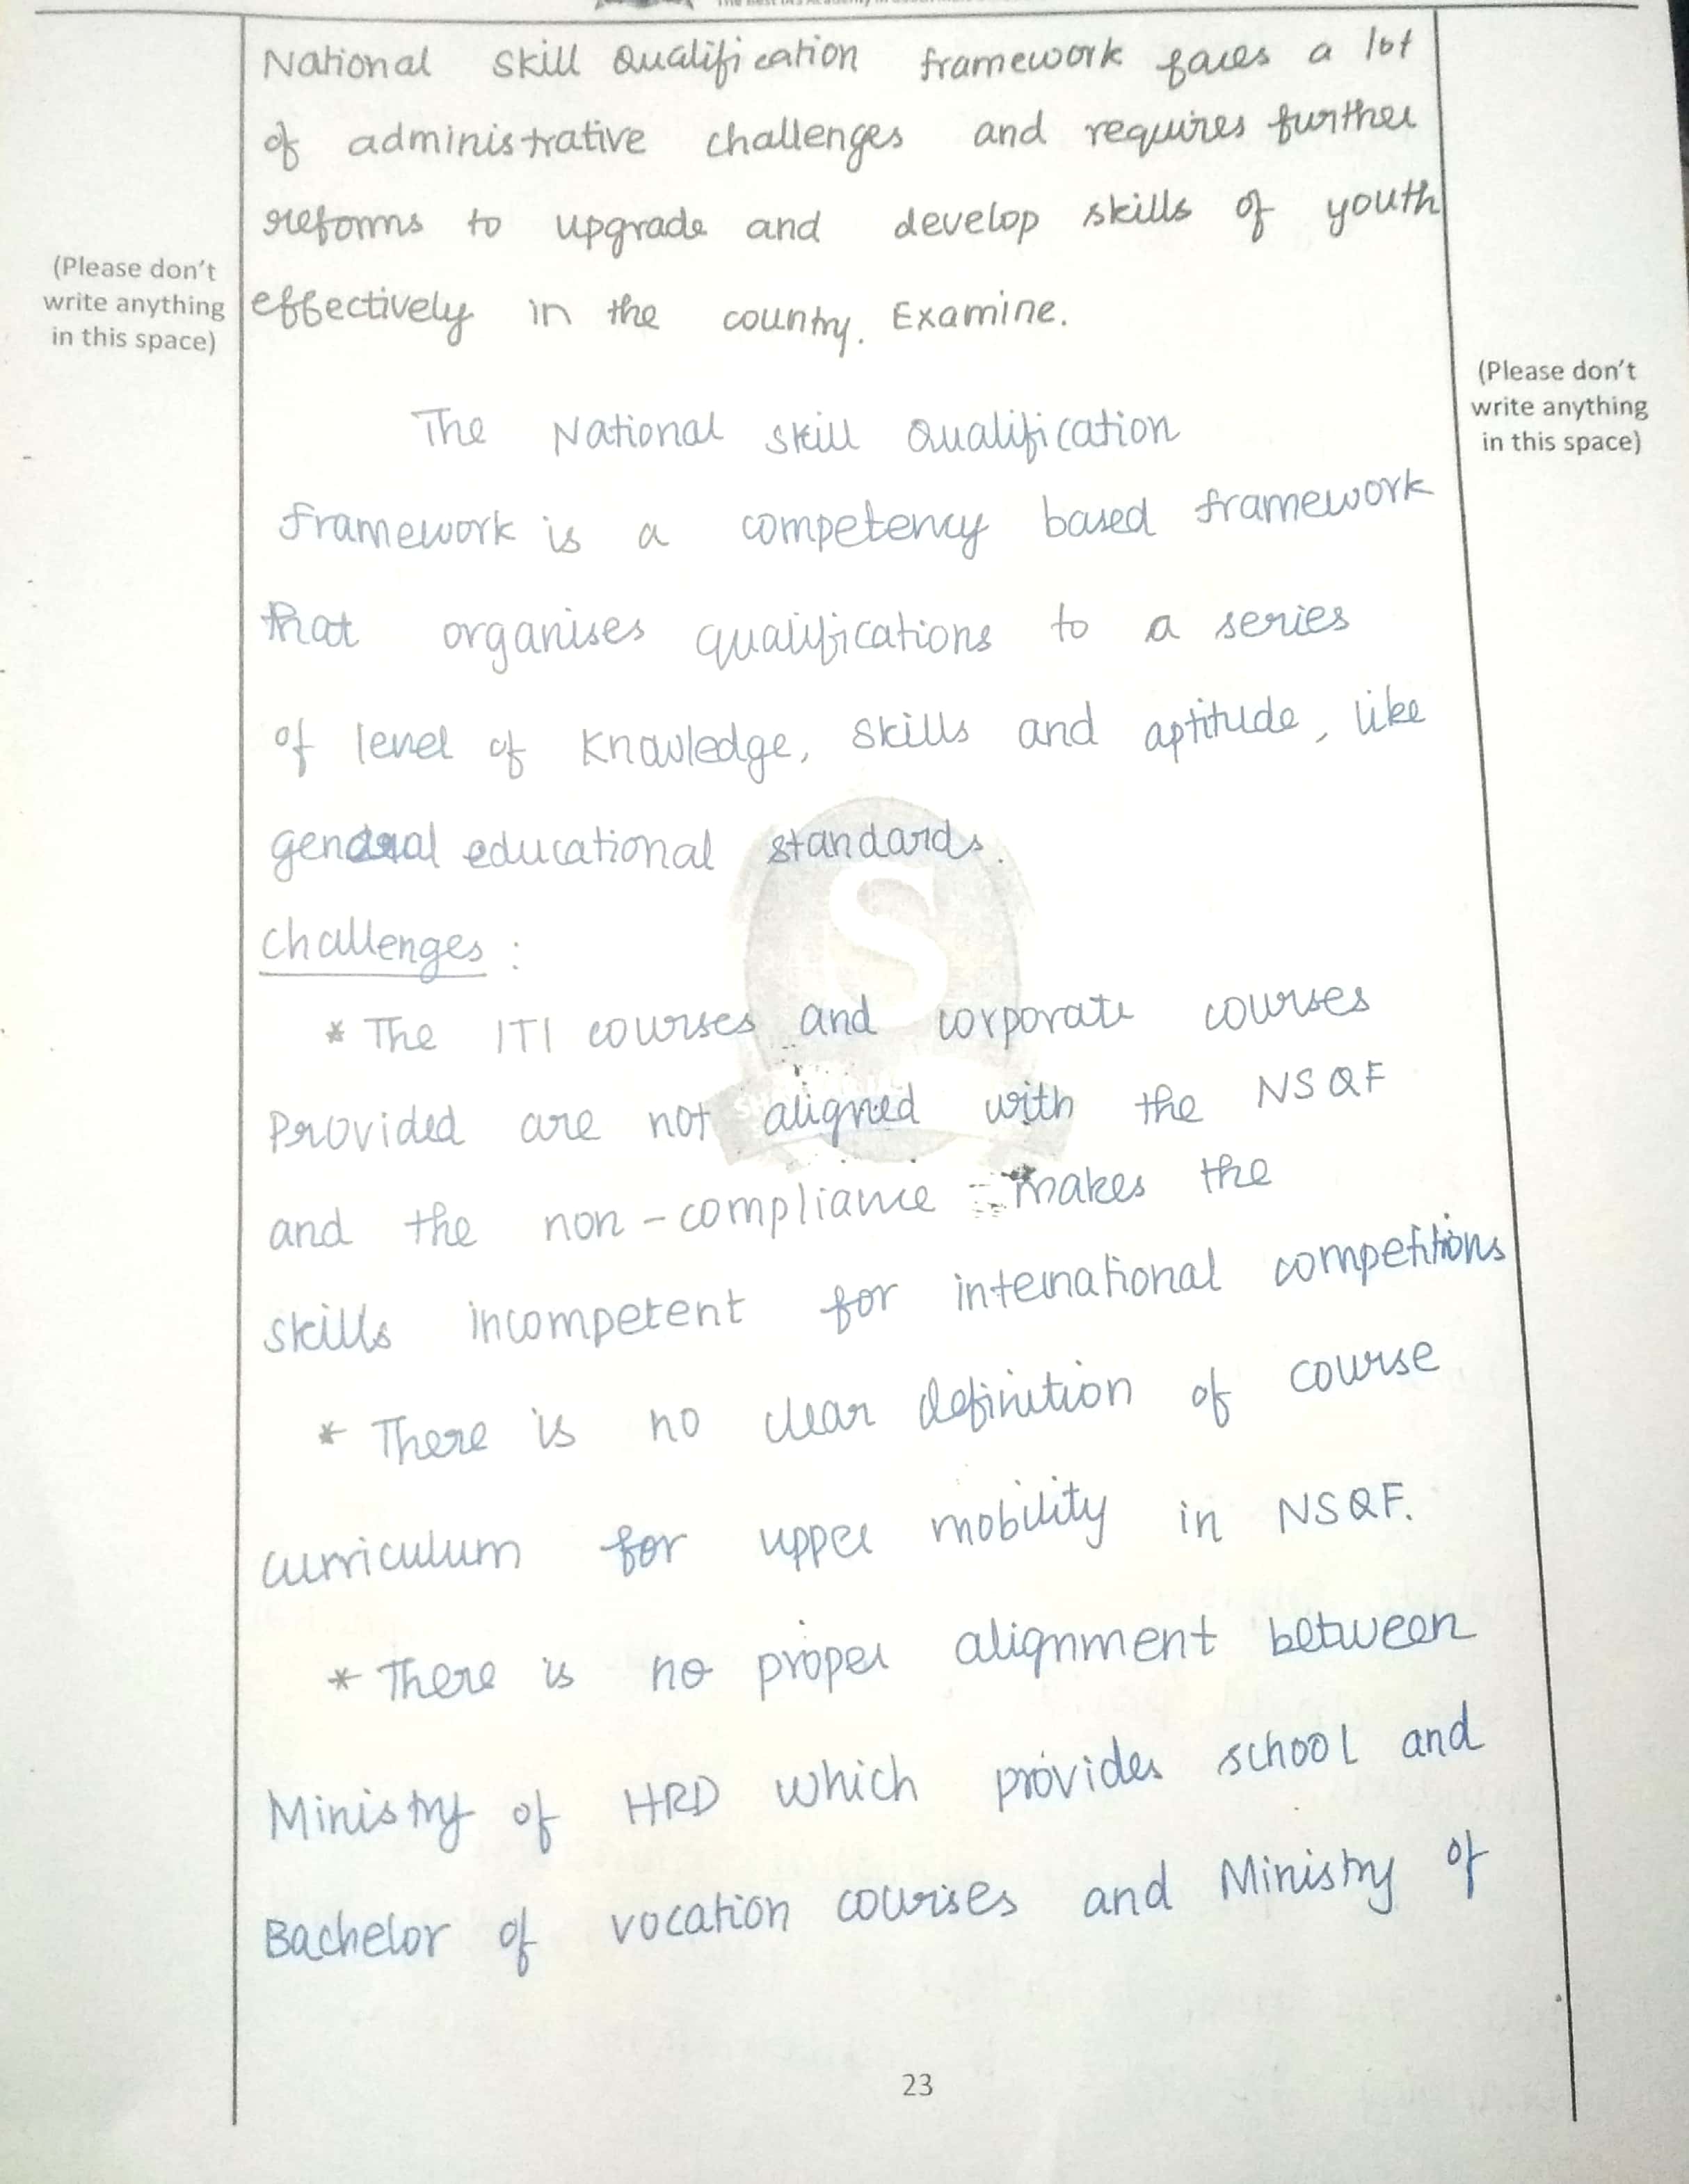 National Skill Qualification framework faces a lot
of administrative challenges and requires further
reforms to upgrade and develop skills of youth
effectively in the country. Examine.
(Please don't
write anything
in this space)
(Please don't
write anything
in this space)
The National Skill Qualification
Framework is a competency based framework
that organises qualifications to a series
of level of Knowledge, Skills and aptitude, like
general educational standards.
Challenges :
* The ITI courses and corporate courses
Provided are not aligned with the NSQF
and the non-compliance makes the
skills incompetent for international competitions
* There is no clear definition of course
curriculum for upper mobility in NSQF.
* There is no proper alignment between
Ministry of HRD which provides school and
Bachelor of vocation courses and Ministry of
23
S